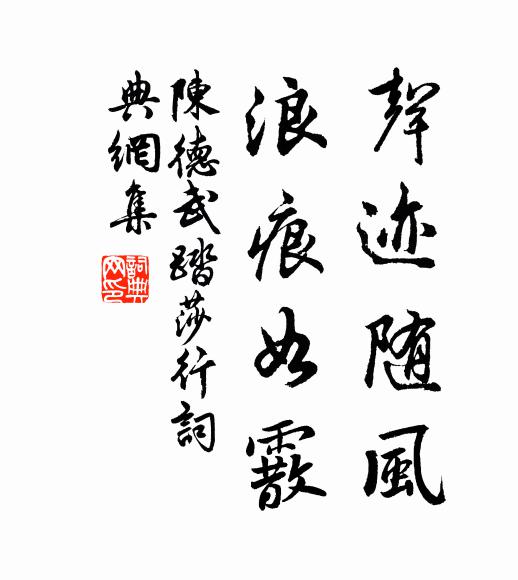 聲迹随風
浪痕如霰
陳德武踏莎行詞
典網集
詞典
网印